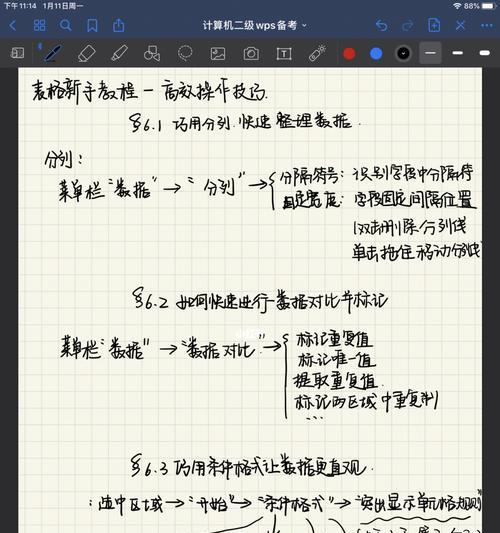 下午11:14 1月11日周一 88%
计算机二级wps备考
表格新手教程一高效操作技巧
§6.1 巧用分列.快速整理数据.
分列:
菜单栏"数据"→"分列"→ 分隔符号: 识别字段中分隔符
固定宽度: 字段固定间隔位置
双击删除分列线
单击拖住移动分列线
§6.2 如何快速进行数据对比并标记
菜单栏"数据"→"数据对比"→ 标记重复值
标记唯一值
提取重复值
标记两区域中重复制
...
§6.3 巧用条件格式让数据更直观.
:选中区域→"开始"→"条件格式"→"突出显示单元格规则"